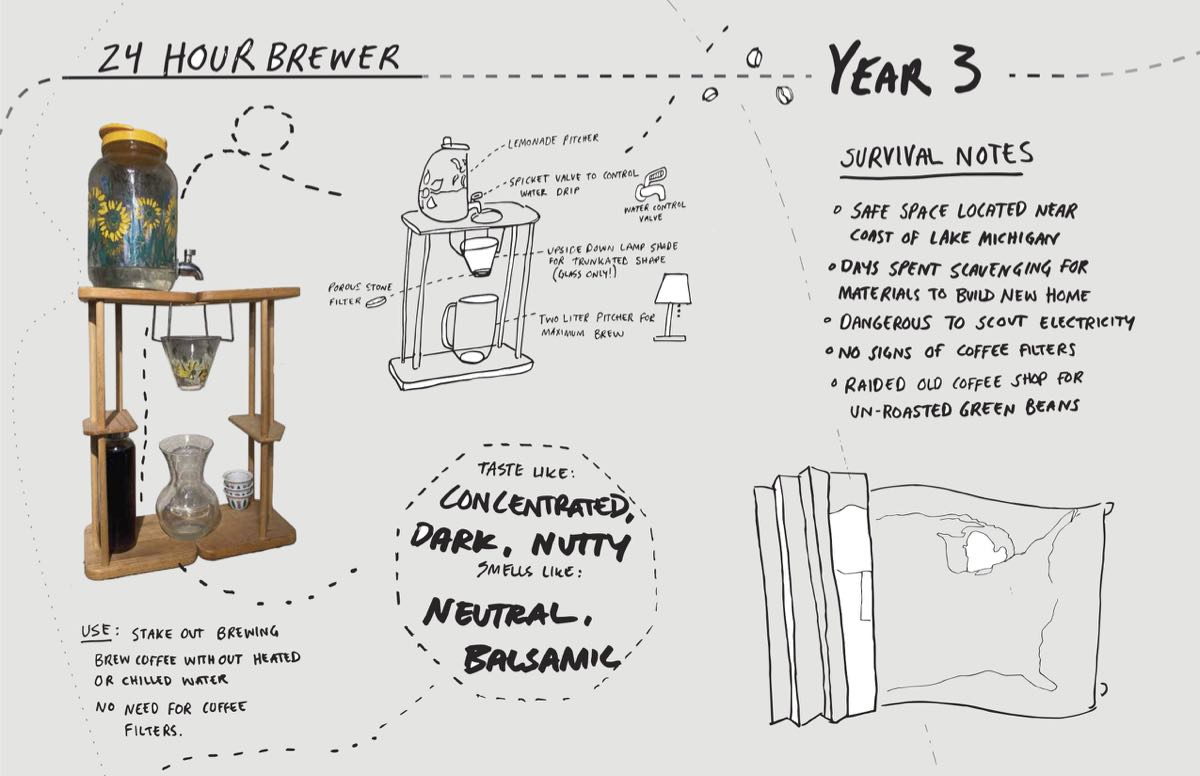 24 HOUR BREWER
YEAR 3
LEMONADE PITCHER
SPICKET VALVE TO CONTROL
WATER DRIP
WATER CONTROL
VALVE
UPSIDE DOWN LAMP SHADE
FOR TRUNKATED SHAPE
(GLASS ONLY!)
POROUS STONE
FILTER
TWO LITER PITCHER FOR
MAXIMUM BREW
SURVIVAL NOTES
SAFE SPACE LOCATED NEAR
COAST OF LAKE MICHIGAN
DAYS SPENT SCAVENGING FOR
MATERIALS TO BUILD NEW HOME
DANGEROUS TO SCOUT ELECTRICITY
NO SIGNS OF COFFEE FILTERS
RAIDED OLD COFFEE SHOP FOR
UN-ROASTED GREEN BEANS
TASTE LIKE:
CONCENTRATED,
DARK, NUTTY
SMELLS LIKE:
NEUTRAL,
BALSAMIC
USE: STAKE OUT BREWING
BREW COFFEE WITHOUT HEATED
OR CHILLED WATER
NO NEED FOR COFFEE
FILTERS.